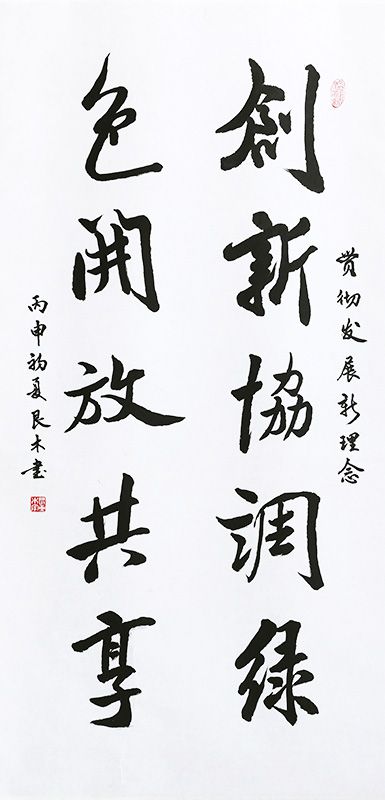 贯彻发展新理念
創新協調绿
色開放共享
丙申初夏良木書